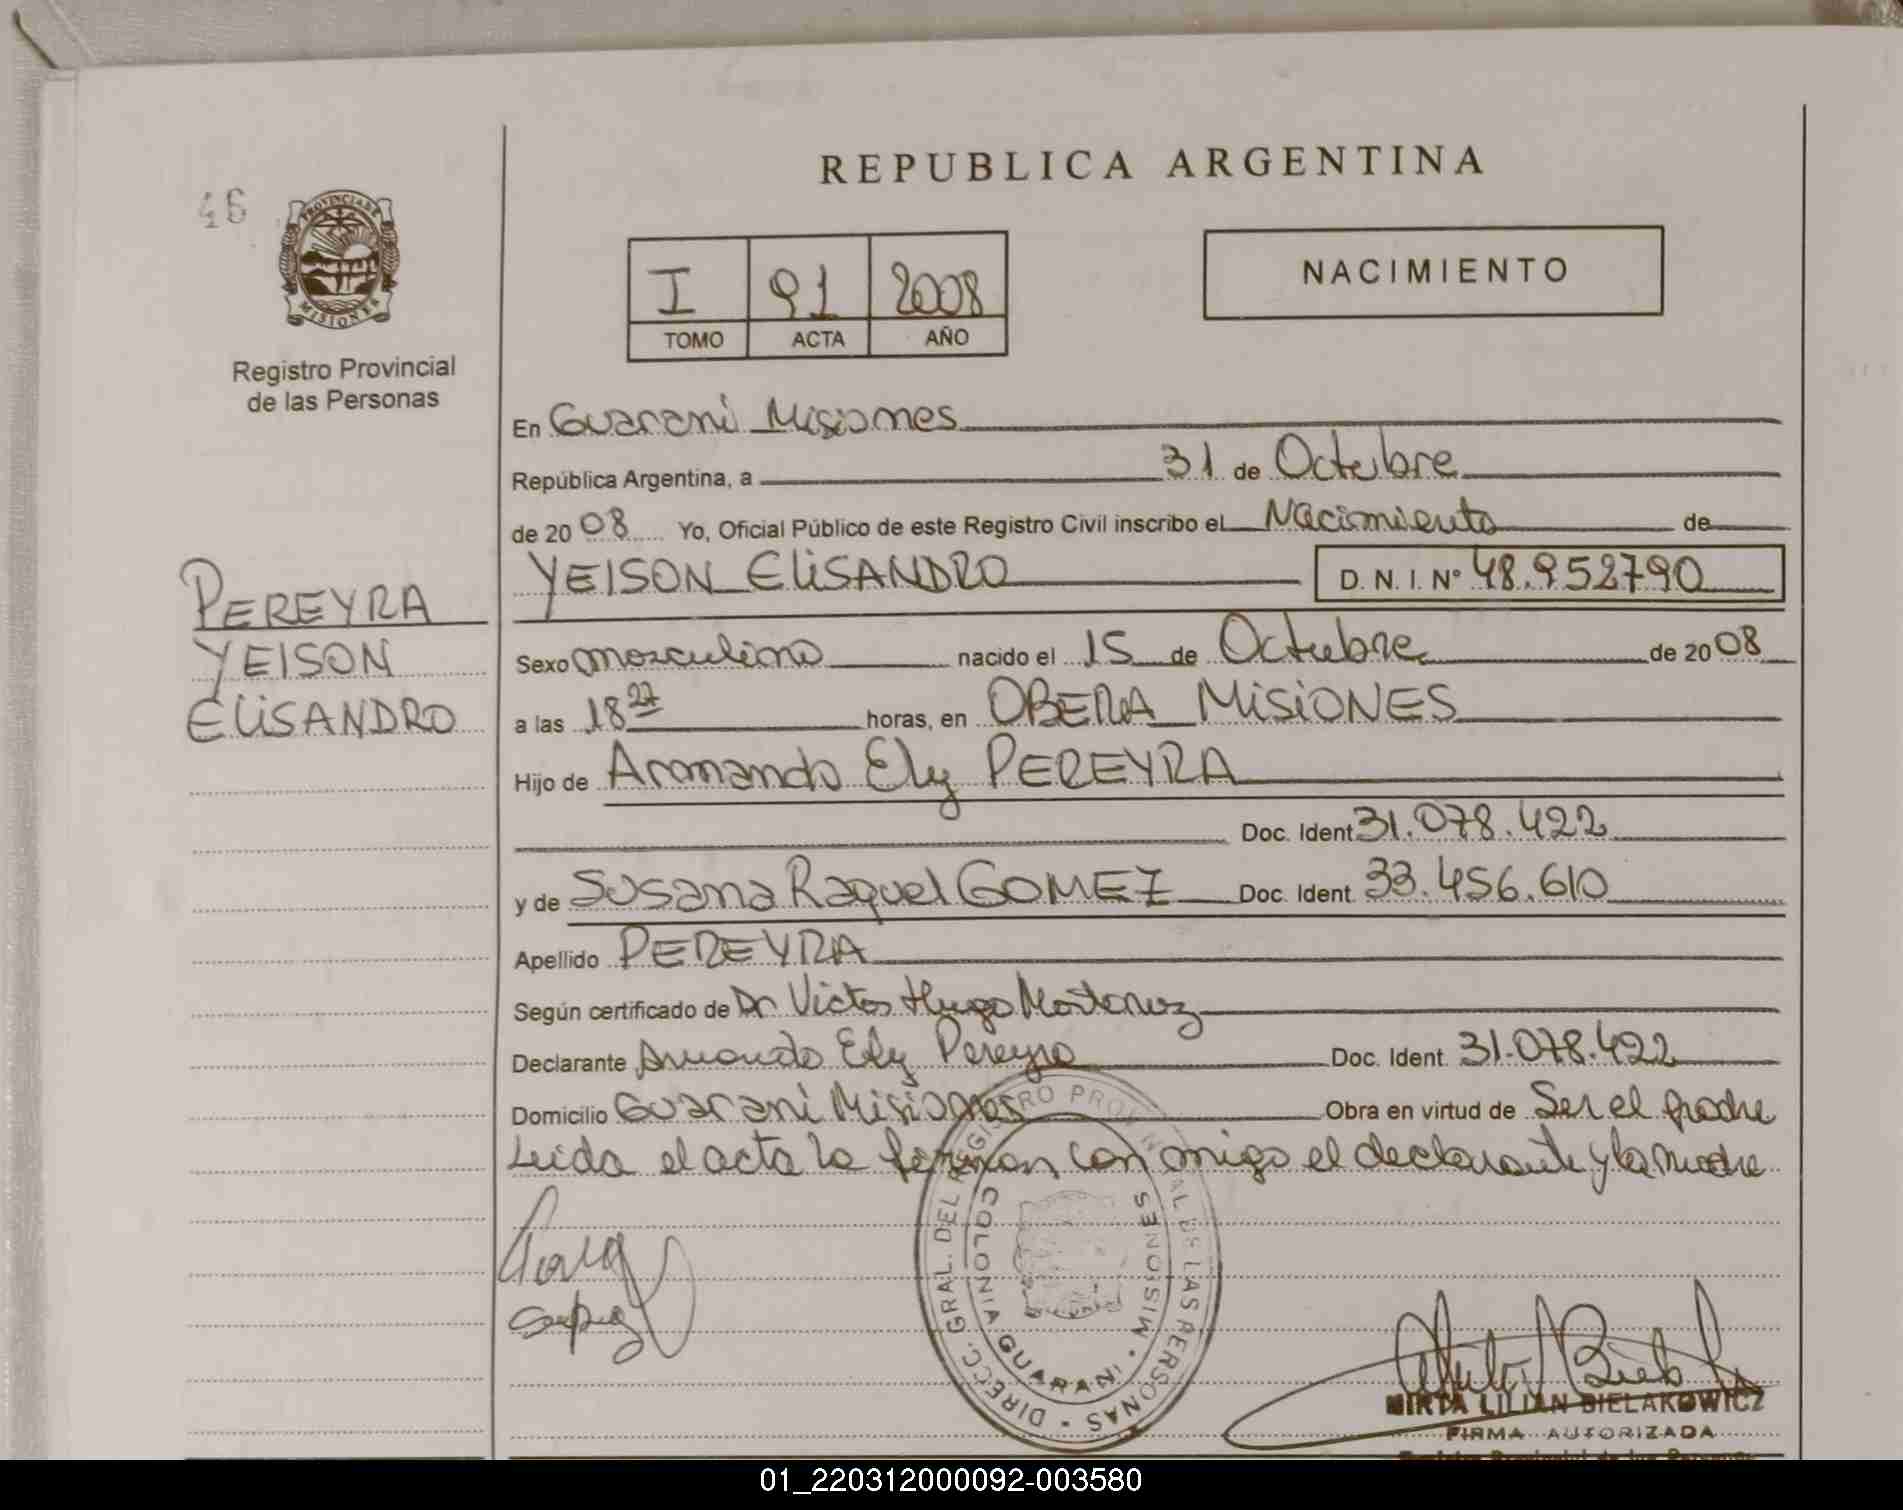 REPUBLICA ARGENTINA
46
PROVINCIA DE
MISIONES
Registro Provincial
de las Personas
I 91 2008
TOMO ACTA AÑO
NACIMIENTO
En Guarani Misiones
República Argentina, a 31 de Octubre
de 2008 Yo, Oficial Público de este Registro Civil inscribo el Nacimiento de
YEISON ELISANDRO D. N. I. Nº 48.952790
PEREYRA
YEISON
ELISANDRO
Sexo masculino nacido el 15 de Octubre de 2008
a las 18 27 horas, en OBERA MISIONES
Hijo de Armando Ely PEREYRA
Doc. Ident 31.078.422
y de Susana Raquel GOMEZ Doc. Ident. 33.456.610
Apellido PEREYRA
Según certificado de Dr Victor Hugo
Declarante Armando Ely Pereyra Doc. Ident. 31.078.422
Domicilio Guarani Misiones Obra en virtud de Ser el padre
Leida el acta la firman con migo el declarante y la madre
DIRECC. GRAL. DEL REGISTRO PROVINCIAL DE LAS PERSONAS
COLONIA GUARANI · MISIONES
MIRTA LILIAN BIELAKOWICZ
FIRMA AUTORIZADA
01_220312000092-003580